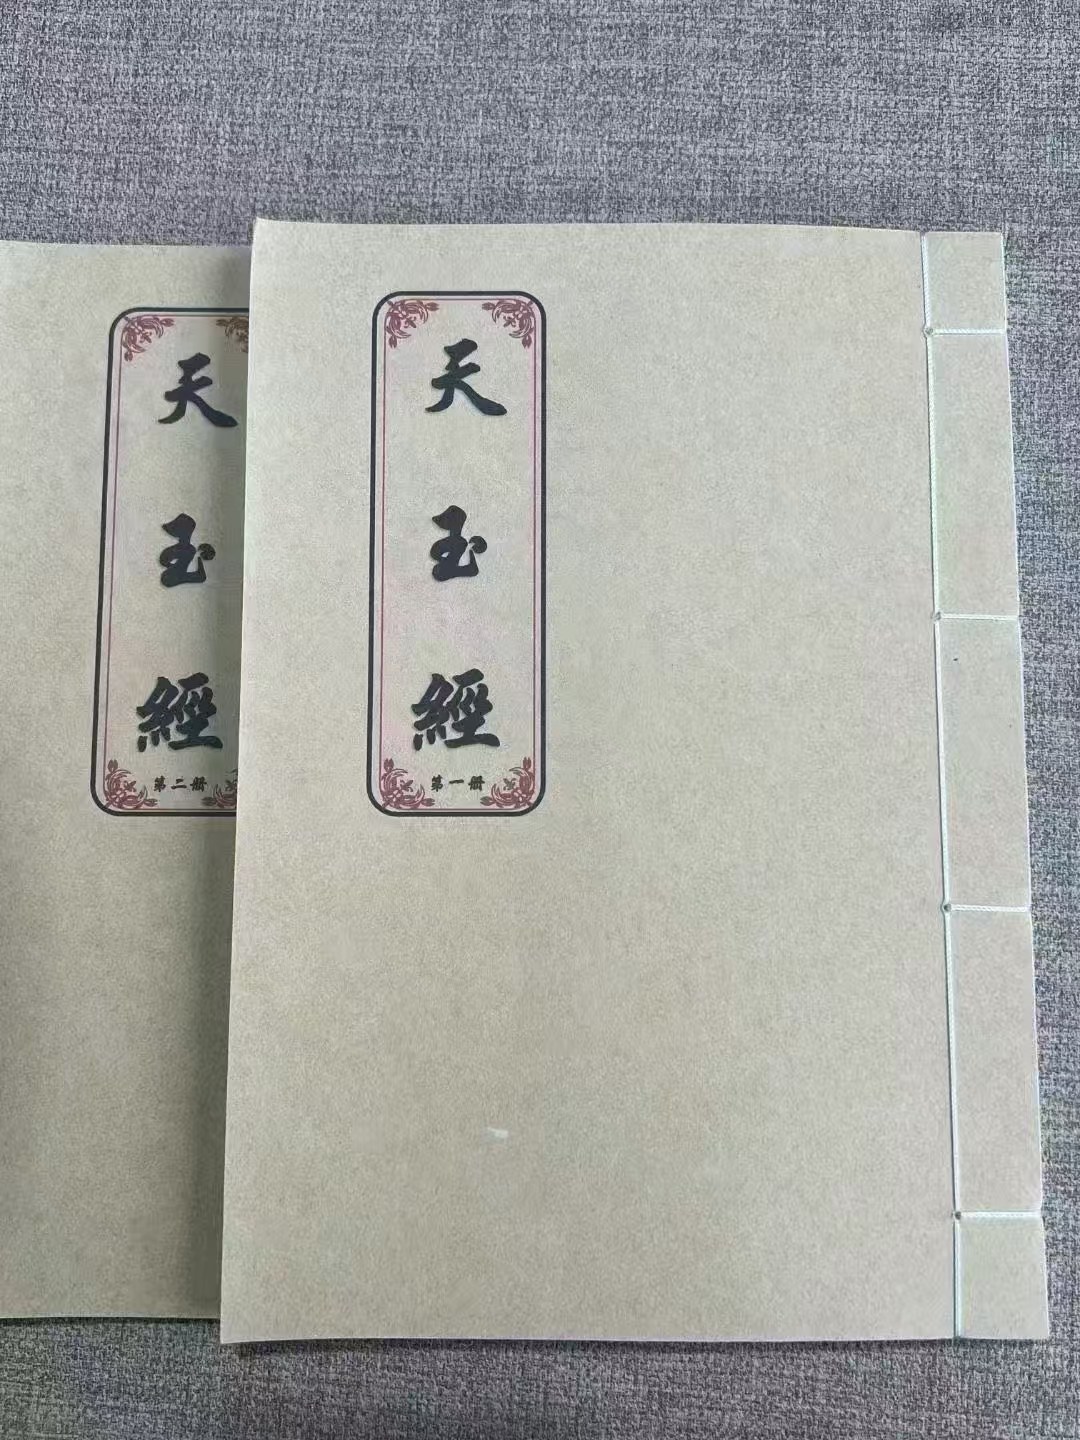 天玉經
第一册
天玉經
第二册